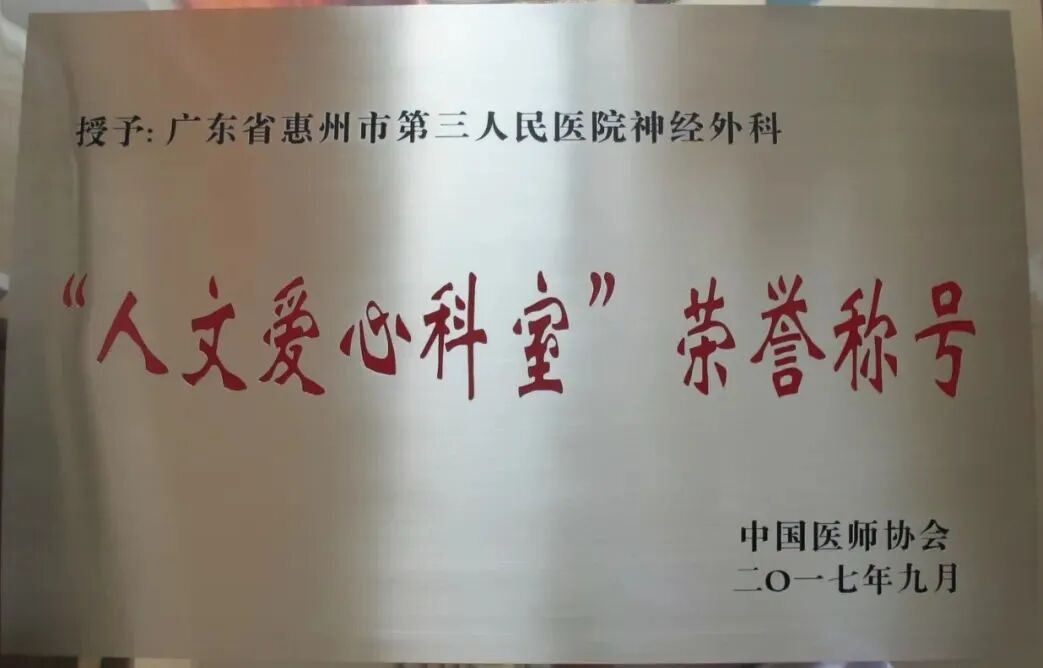 授予:广东省惠州市第三人民医院神经外科
“人文爱心科室”荣誉称号
中国医师协会
二〇一七年九月